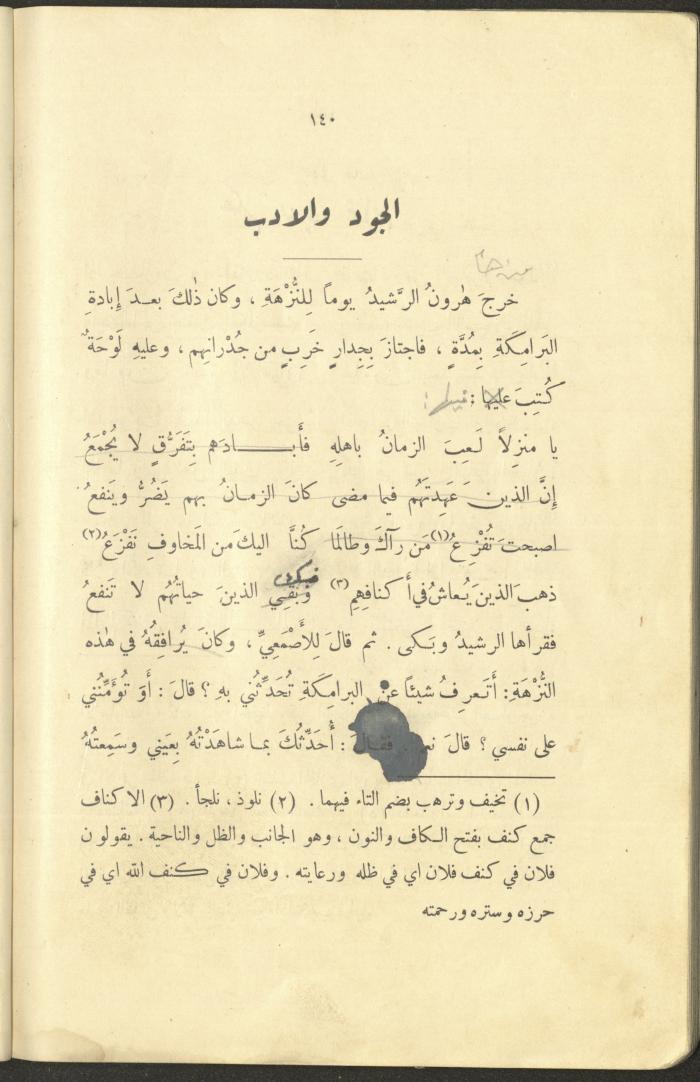 ١٤٠
الجود والادب
من هنا
خرجَ هٰرونُ الرَّشيدُ يوماً لِلنُّزْهَةِ ، وكان ذٰلكَ بعـدَ إِبادةِ
البَرامِكَةِ بِمُدَّةٍ ، فاجتازَ بِجِدارٍ خَرِبٍ من جُدْرانِهم ، وعليهِ لَوْحَةٌ
كُتِبَ عليها : فيها :
يا منزلاً لَعِبَ الزمانُ باهلِهِ فأَبـــادَهم بِتَفَرُّقٍ لا يُجْمَعُ
إِنَّ الذينَ عَهِدتَهُم فيما مضى كانَ الزمـانُ بهم يَضُرُّ ويَنفعُ
اصبحتَ تُفْزِعُ (١) مَن رآكَ وطالَمَا كُنَّا اليكَ من المَخاوفِ نَفْزَعُ (٢)
ذهب الذينَ يُعاشُ في أَكنافِهِمِ (٣) وبَقِيَ الذينَ حياتُهُم لا تَنفعُ
فقرأها الرشيدُ وبَكى . ثم قالَ لِلأَصْمَعِيِّ ، وكانَ يُرافِقُهُ في هٰذه
النُّزْهَةِ : أَتَعرِفُ شيئاً عنِ البرامِكَةِ تُحَدِّثُني بهِ ؟ قالَ : أَوَ تُؤَمِّنُني
على نفسي ؟ قالَ نعم . فقـالَ : أُحَدِّثُكَ بمـا شاهَدْتُهُ بِعَيني وسَمِعتُهُ
(١) تخيف وترهب بضم التاء فيهما . (٢) نلوذ ، نلجأ . (٣) الاكناف
جمع كنف بفتح الكاف والنون ، وهو الجانب والظل والناحية . يقولون
فلان في كنف فلان اي في ظله ورعايته . وفلان في كنف الله اي في
حرزه وستره ورحمته